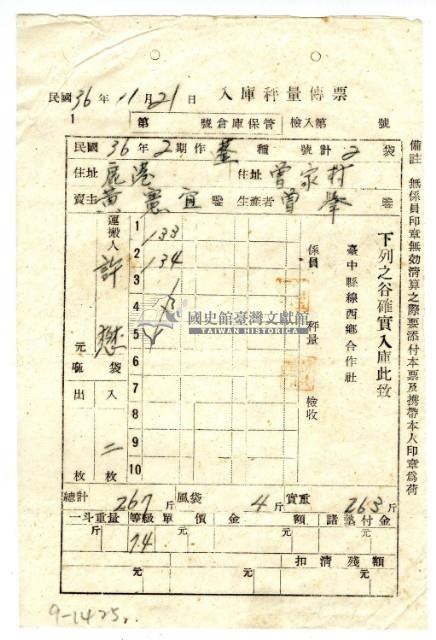 民國36年11月21日 入庫秤量傳票
1 第 號倉庫保管 檢入第 號
民國36年2期作 種 號計2袋
住址 鹿港 住址 曾家村
賣主 黃憲宜 鑒 生產者 曾舉 鑒
下列之谷確實入庫此致
臺中縣線西鄉合作社
係員
秤量
檢收
運搬人 許
1 133
2 134
3
4
5
6
7
8
9
10
元
袋
出 入
枚 二枚
國史館臺灣文獻館
TAIWAN HISTORICA
總計 267斤 風袋 4斤 實重 263斤
一斗重量 等級 單價 金額 諸 付金
斤 74 元 元 元
扣清殘額
元 元 元
備註 無係員印章無効清算之際要添付本票及携帶本人印章為荷
9-1425